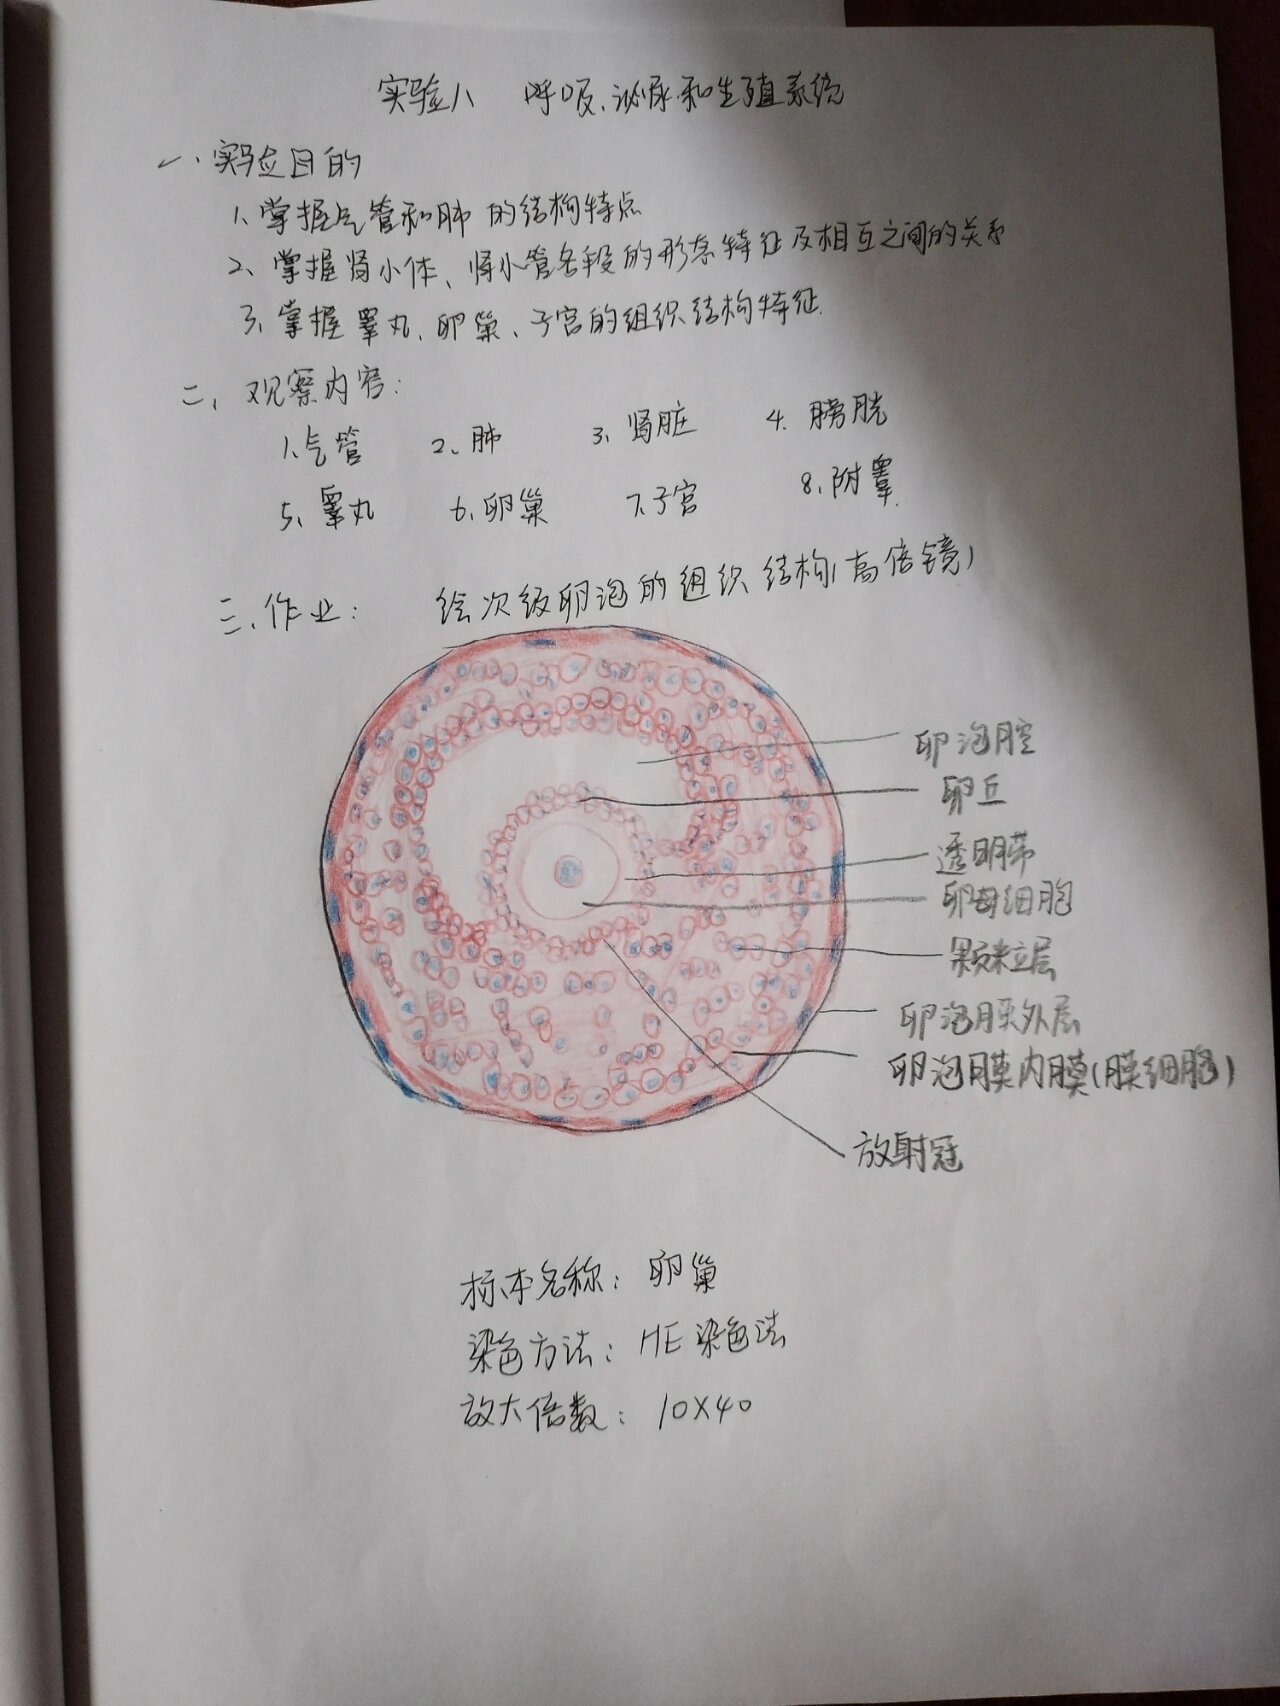 实验八 呼吸、泌尿和生殖系统
一、实验目的
1、掌握气管和肺的结构特点
2、掌握肾小体、肾小管各段的形态特征及相互之间的关系
3、掌握睾丸、卵巢、子宫的组织结构特征.
二、观察内容:
1、气管 2、肺 3、肾脏 4、膀胱
5、睾丸 6、卵巢 7、子宫 8、附睾.
三、作业: 绘次级卵泡的组织结构(高倍镜)
卵泡腔
卵丘
透明带
卵母细胞
颗粒层
卵泡膜外层
卵泡膜内膜(膜细胞)
放射冠
标本名称: 卵巢
染色方法: HE染色法
放大倍数: 10×40